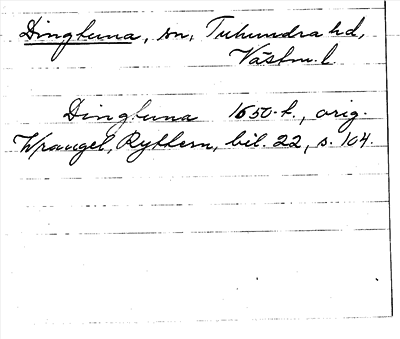 Dingtuna, sn, Tuhundra hd,
Västm. l.
Dingtuna 1650-t., orig.
Wrangel, Ryttern, bil. 22, s. 104.